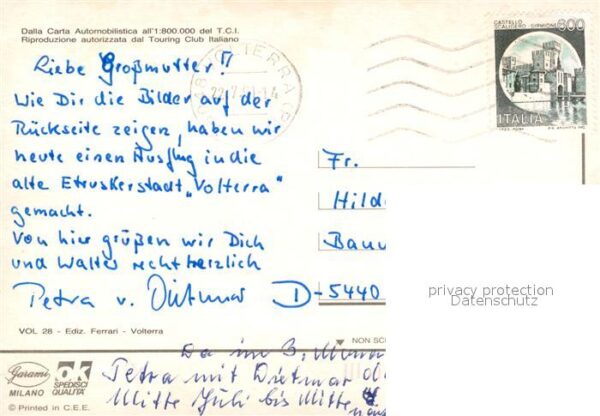 Dalla Carta Automobilistica all'1:800.000 del T.C.I.
Riproduzione autorizzata dal Touring Club Italiano
CASTELLO SCALIGERO - SIRMIONE
600
ITALIA
Liebe Großmutter!!
Wie Dir die Bilder auf der
Rückseite zeigen, haben wir
heute einen Ausflug in die
alte Etruskerstadt „Volterra“
gemacht.
Von hier grüßen wir Dich
und Walter recht herzlich
Petra u. Dietmar
Fr.
Hild
Bau
D-5440
privacy protection
Datenschutz
VOL 28 - Ediz. Ferrari - Volterra
NON SC
Garami
MILANO
ok
SPEDISCI
QUALITA'
© Printed in C.E.E.
Da im 3,
Petra mit Dietmar d
Mitte Juli bis Mitte